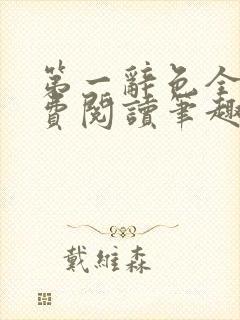 第一辭色全
費閱讀筆趣
戴維森